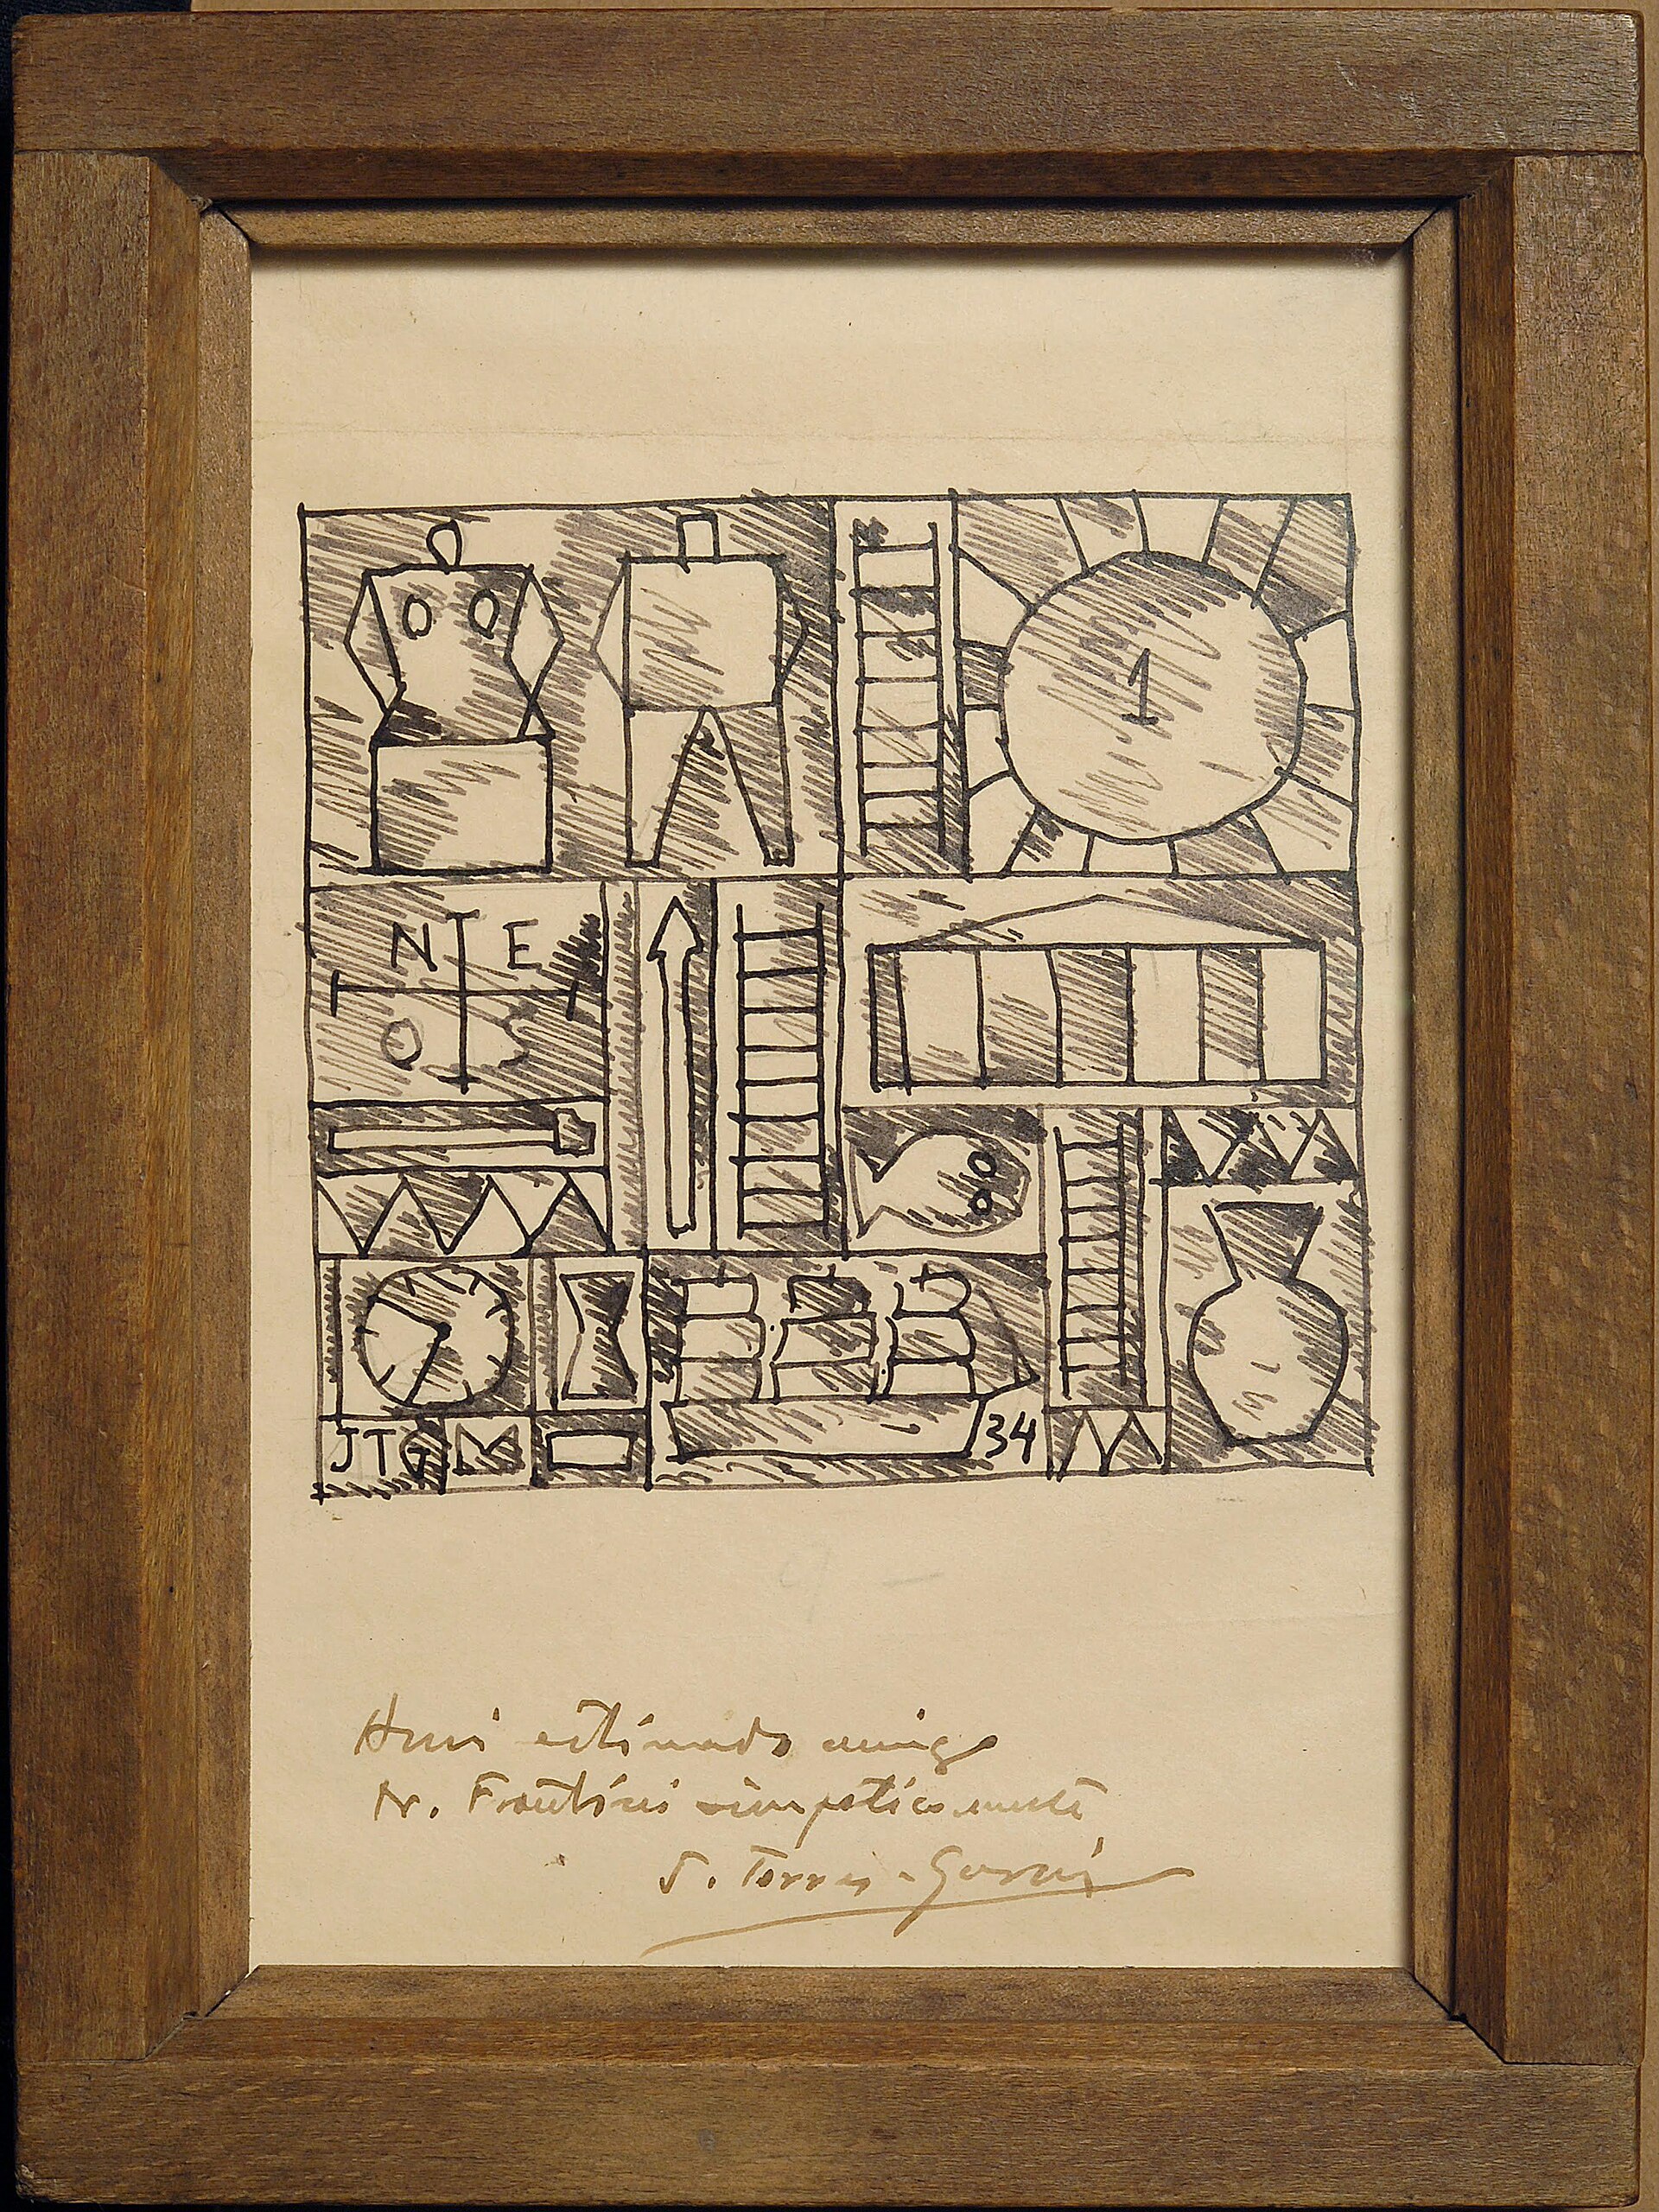 1
N E
O S
JTG
34
A mi estimado amigo
Sr. simpaticamente
J. Torres-García